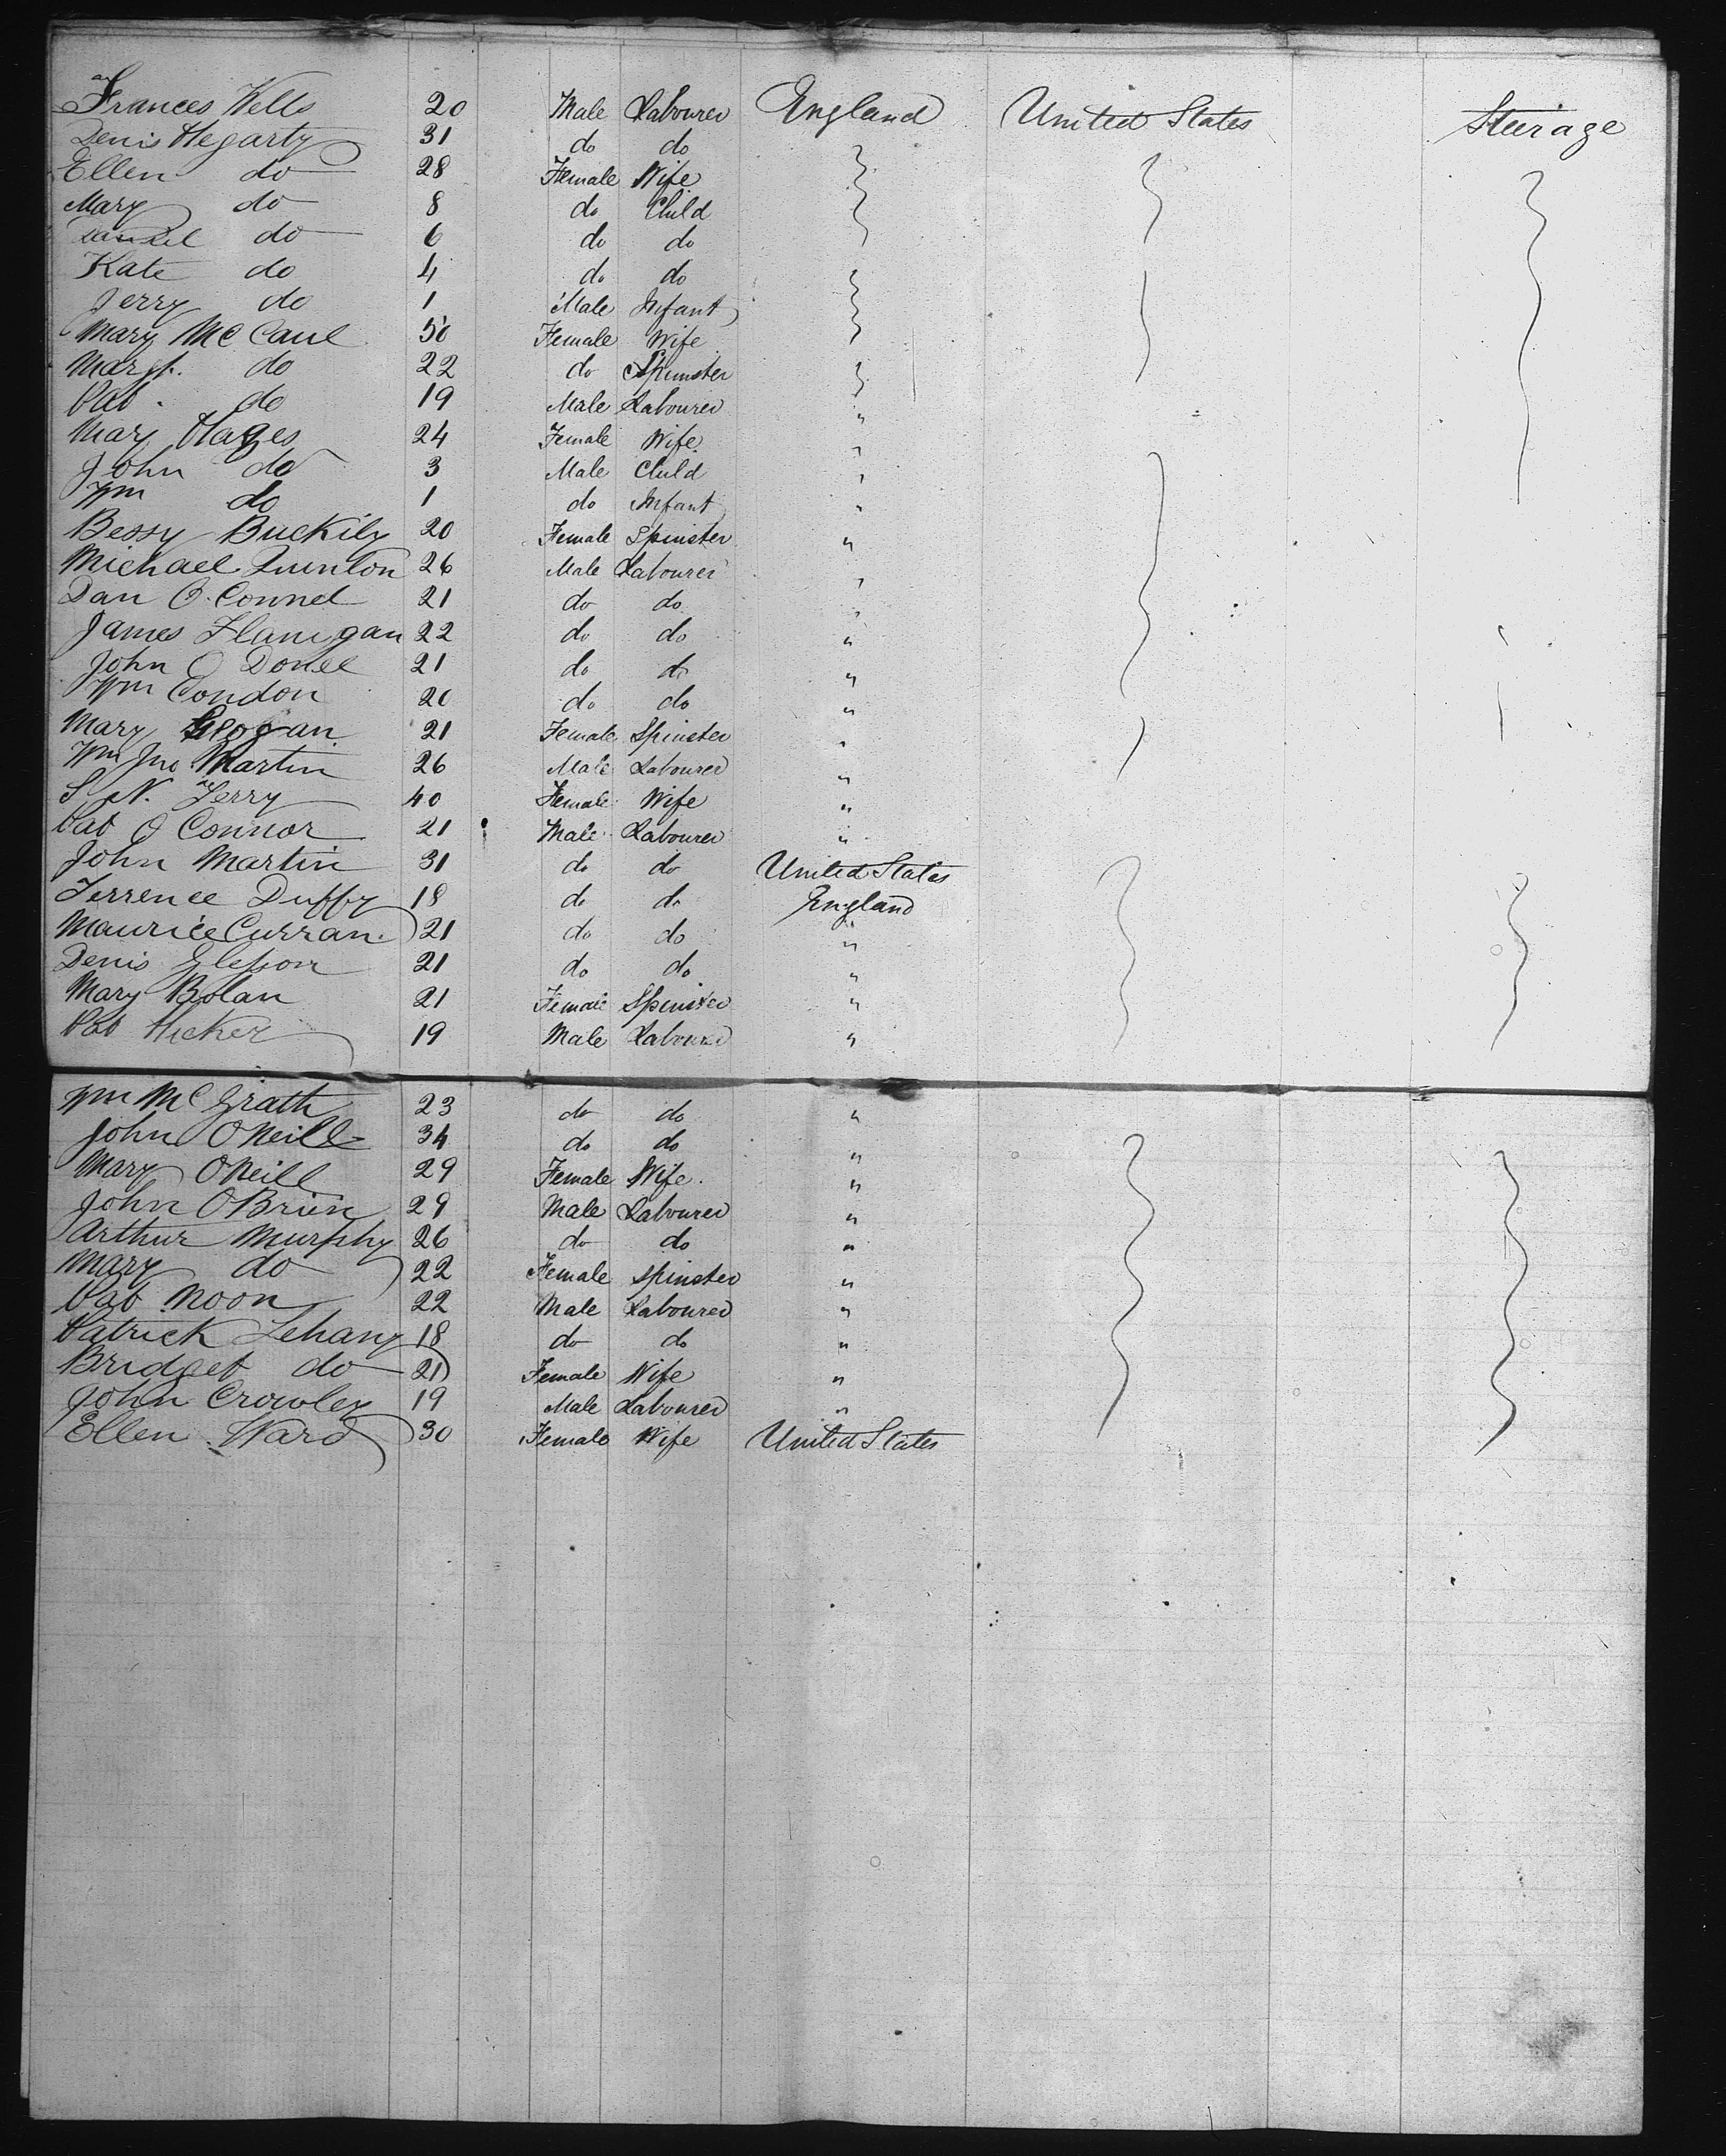 Frances Wells 20 Male Labourer England United States Steerage
Denis Hegarty 31 do do
Ellen do 28 Female Wife
Mary do 8 do Child
Daniel do 6 do do
Kate do 4 do do
Jerry do 1 Male Infant
Mary Mc Caul 50 Female Wife
Margt. do 22 do Spinster
Pat do 19 Male Labourer "
Mary Hayes 24 Female Wife "
John do 3 Male Child "
Wm do 1 do Infant "
Bessy Buckily 20 Female Spinster "
Michael Quinlon 26 Male Labourer "
Dan O. Connel 21 do do "
James Flanigan 22 do do "
John O Donel 21 do do "
Wm Condon 20 do do "
Mary 21 Female Spinster "
Wm Jno Martin 26 Male Labourer "
S N. Terry 40 Female Wife "
Pat O Connor 21 Male Labourer "
John Martin 31 do do United States
Terrence Duffy 18 do do England
Maurice Curran 21 do do "
Denis Glesson 21 do do "
Mary Bolan 21 Female Spinster "
Pat Hickey 19 Male Labourer "
Wm Mc Grath 23 do do "
John O Neill 34 do do "
Mary O Neill 29 Female Wife "
John O Brien 29 Male Labourer "
Arthur Murphy 26 do do "
Mary do 22 Female Spinster "
Pat Noon 22 Male Labourer "
Patrick Lehany 18 do do "
Bridget do 21 Female Wife "
John Crowley 19 Male Labourer "
Ellen Ward 30 Female Wife United States